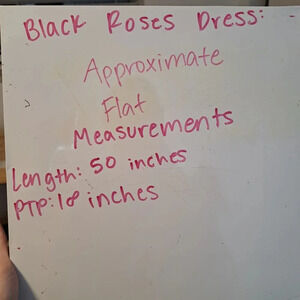 Black Roses Dress:
Approximate
Flat
Measurements
Length: 50 inches
PTP: 18 inches